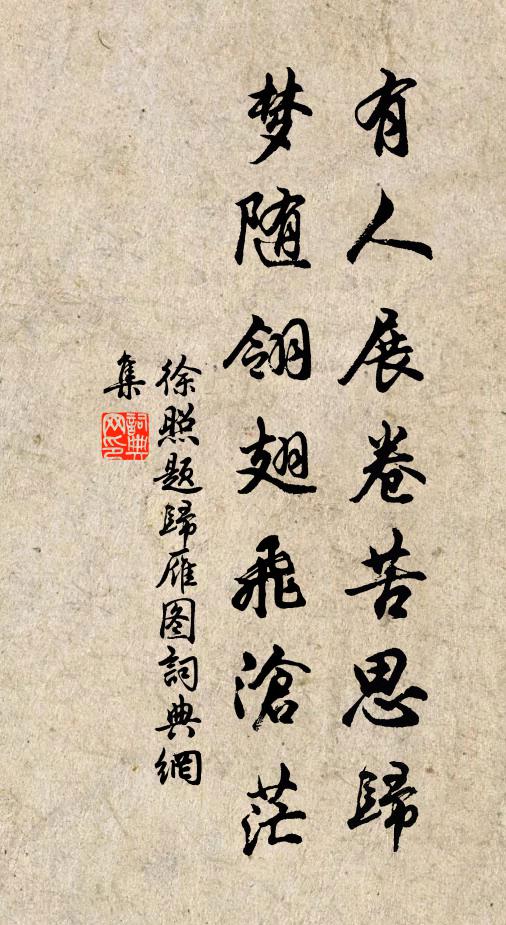 有人展卷苦思歸
梦随翎翅飛滄茫
徐照題歸雁图詞典網
集
詞典网印